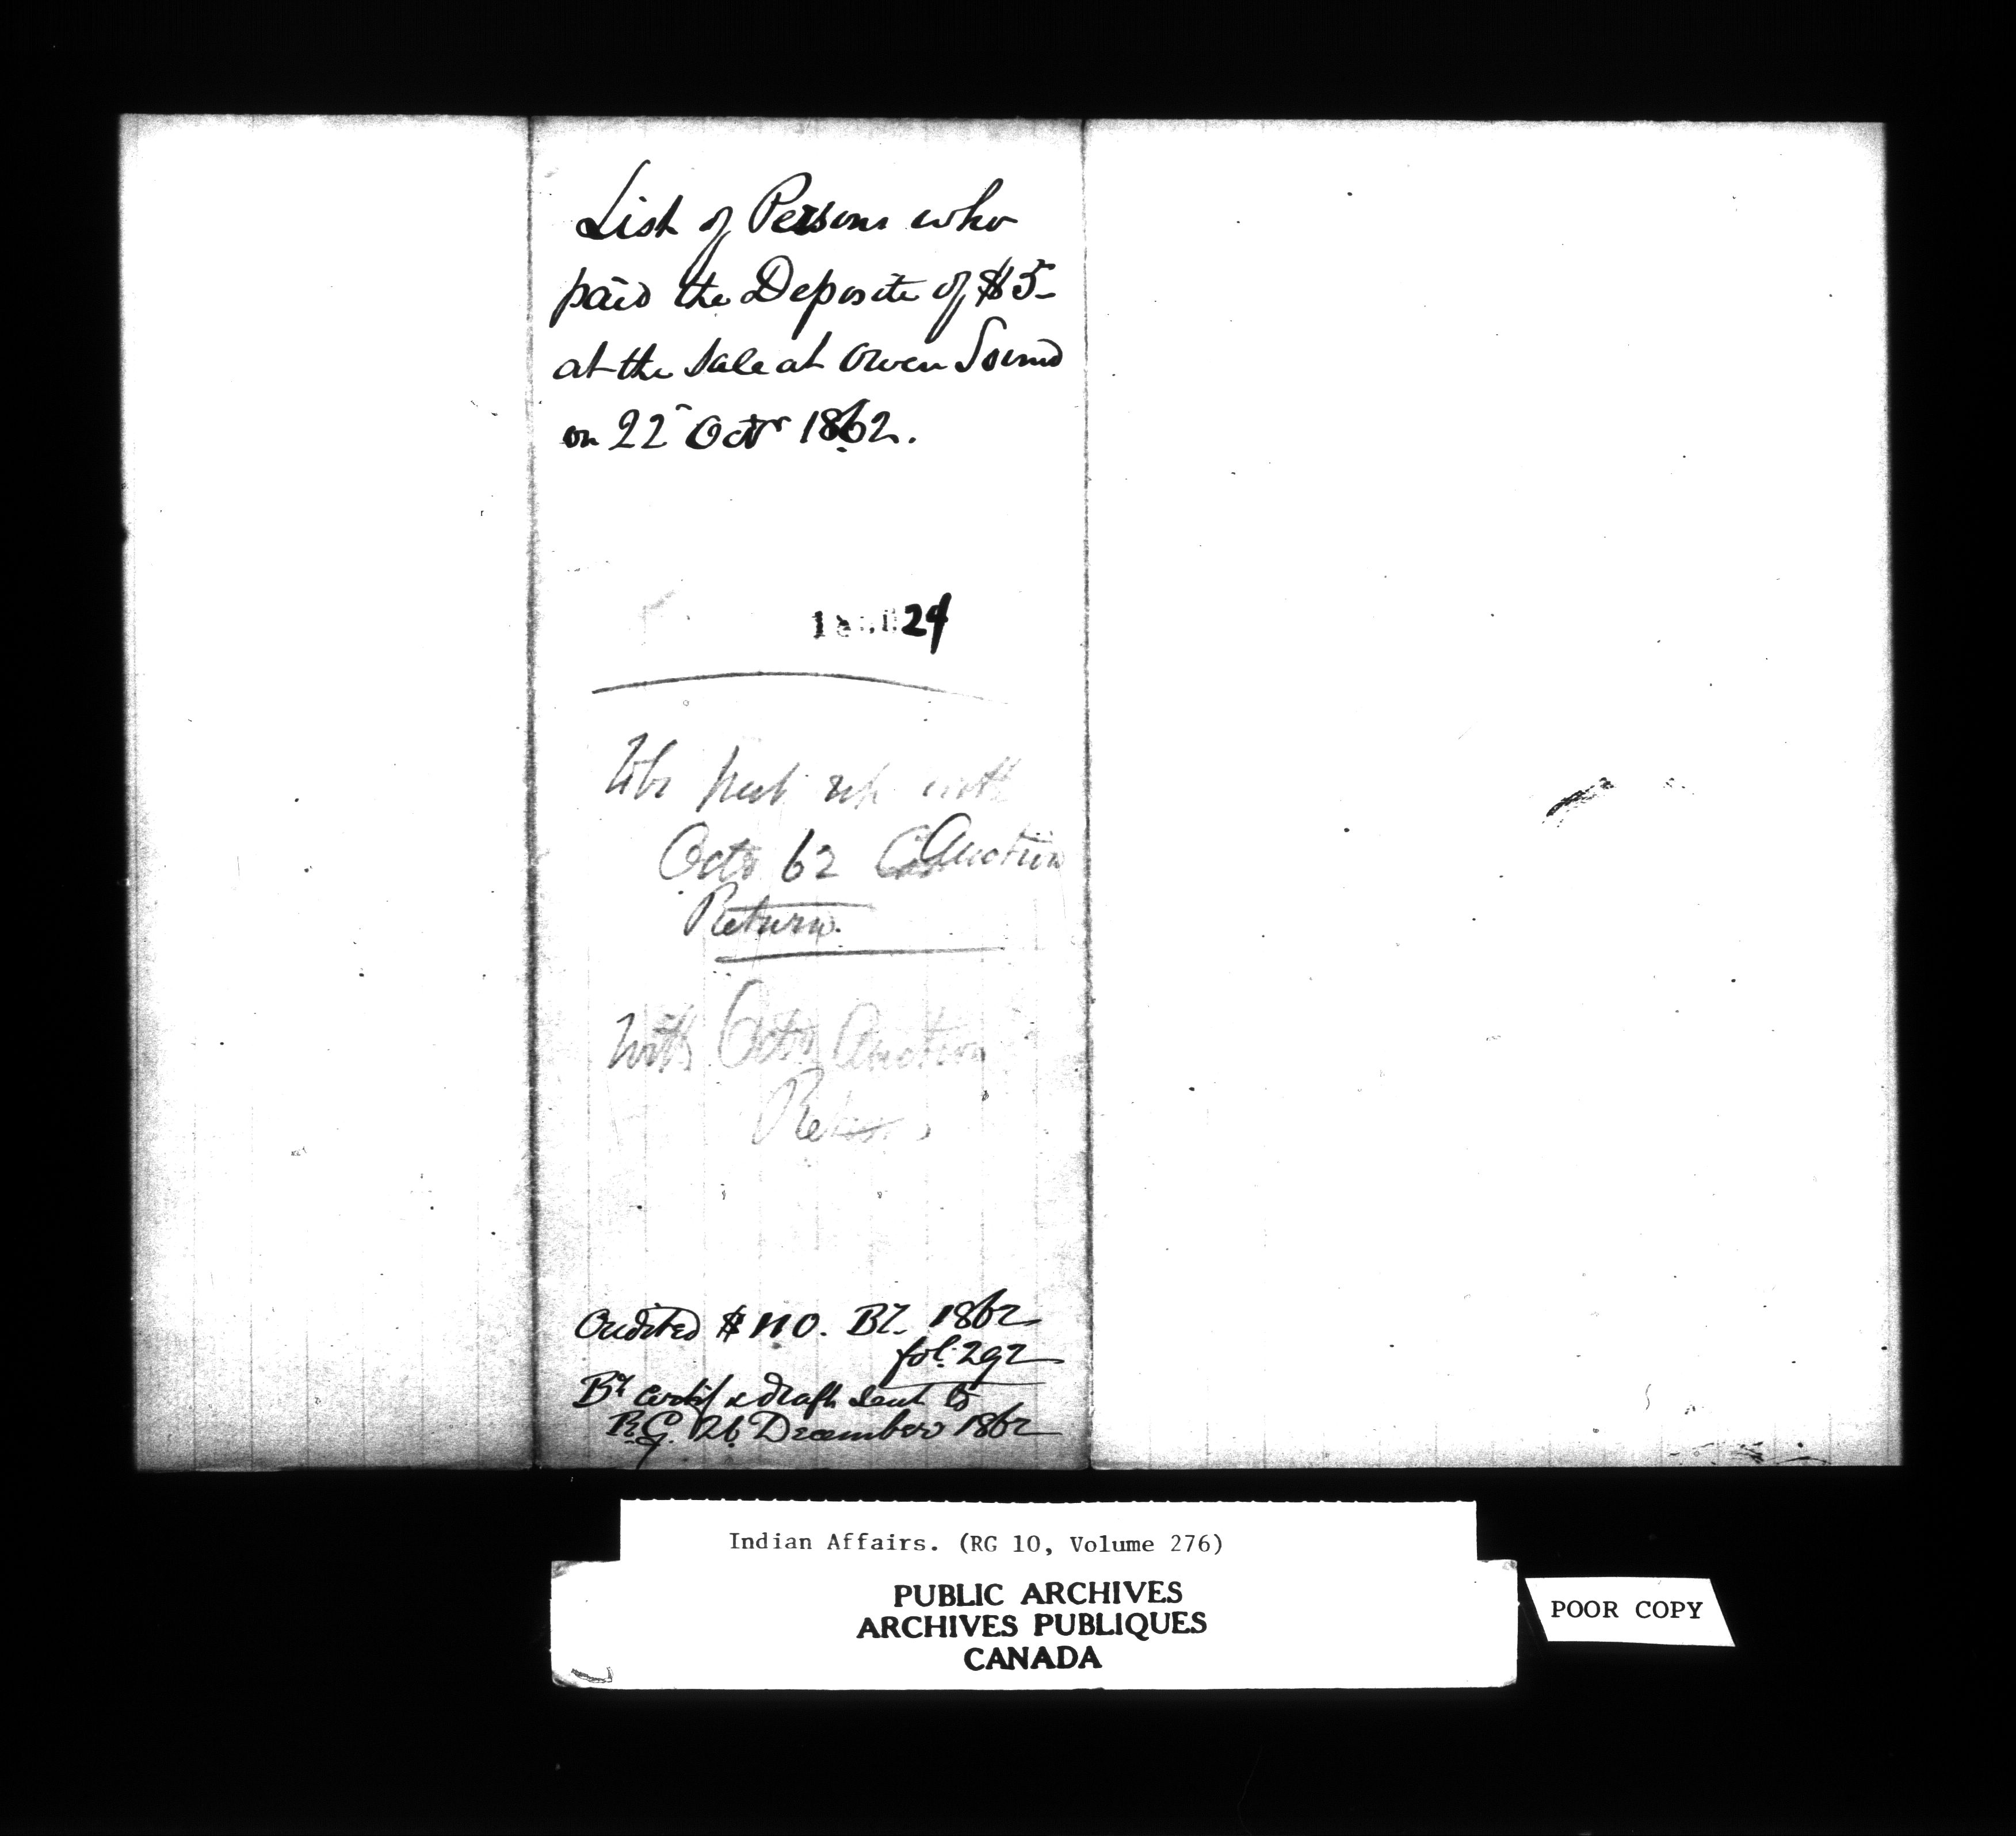 List of Persons who
paid the Deposite of $5-
at the Sale at Owen Sound
on 22 Octr 1862.
24
To be put up with
Octr 62 Auction
Return.
With Octr Auction
Return
Audited $110. Bk. 1862
fol. 292
Bk certif & draft sent to
R.G. 26 December 1862
Indian Affairs. (RG 10, Volume 276)
PUBLIC ARCHIVES
ARCHIVES PUBLIQUES
CANADA
POOR COPY